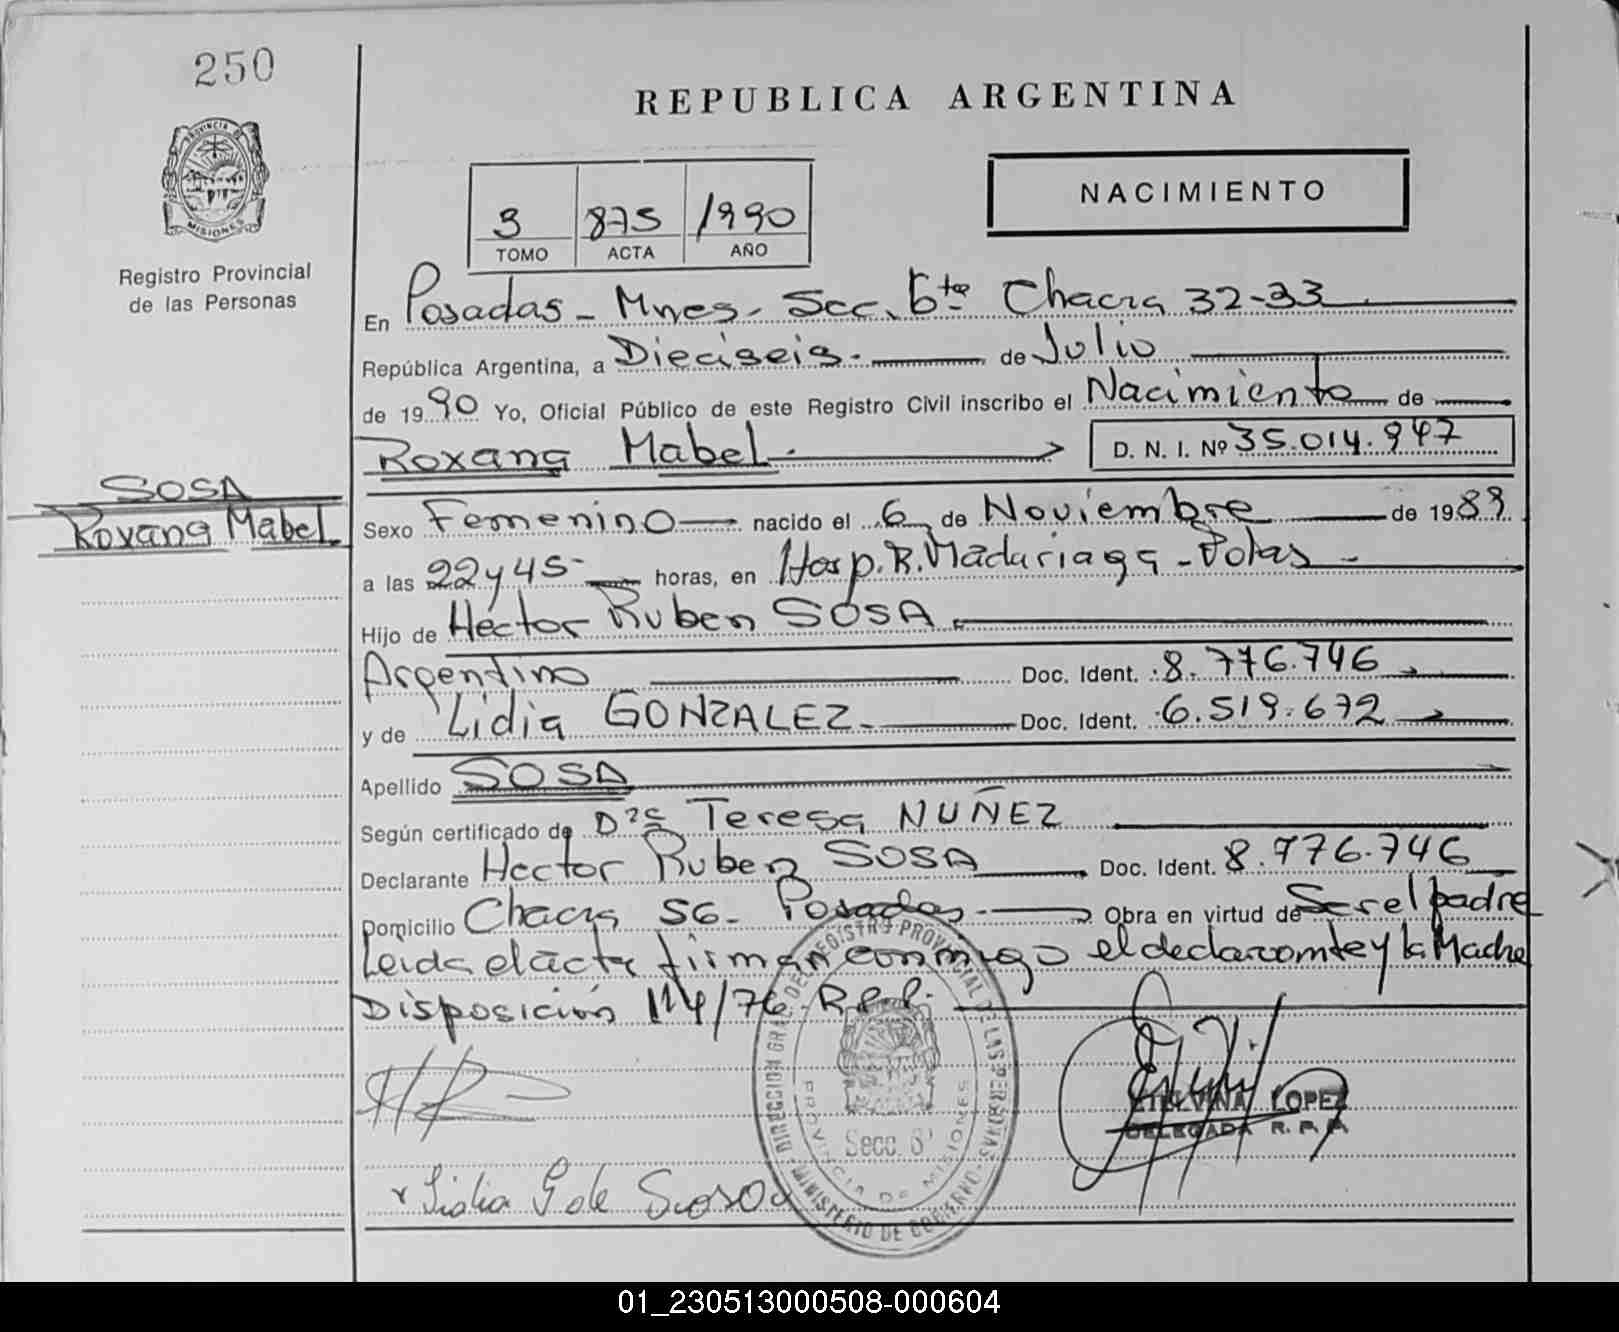 250
PROVINCIA DE
MISIONES
Registro Provincial
de las Personas
SOSA
Roxana Mabel
REPUBLICA ARGENTINA
NACIMIENTO
3 875 1990
TOMO ACTA AÑO
En Posadas - Mnes. Secc. 6ta Chacra 32-33
República Argentina, a Dieciseis. de Julio
de 1990 Yo, Oficial Público de este Registro Civil inscribo el Nacimiento de
Roxana Mabel. D. N. I. Nº 35.014.947
Sexo Femenino nacido el 6 de Noviembre de 1989
a las 22 y 45 horas, en Hosp. R. Madariaga - Pdas -
Hijo de Hector Ruben SOSA
Argentino Doc. Ident. 8.776.746
y de Lidia GONZALEZ Doc. Ident. 6.519.672
Apellido SOSA
Según certificado de Dra Teresa NUÑEZ
Declarante Hector Ruben SOSA Doc. Ident. 8.776.746
Domicilio Chacra 56 - Posadas - Obra en virtud de Ser el padre
Leida el acta firman conmigo el declarante y la Madre
Disposición 114/76 R.P.P.
DIRECCION GRAL. DEL REGISTRO PROVINCIAL DE LAS PERSONAS
MINISTERIO DE GOBIERNO
PROVINCIA DE MISIONES
Secc. 6ª
ETELVINA LOPEZ
DELEGADA R. P. P.
Lidia G de Sosa
01_230513000508-000604